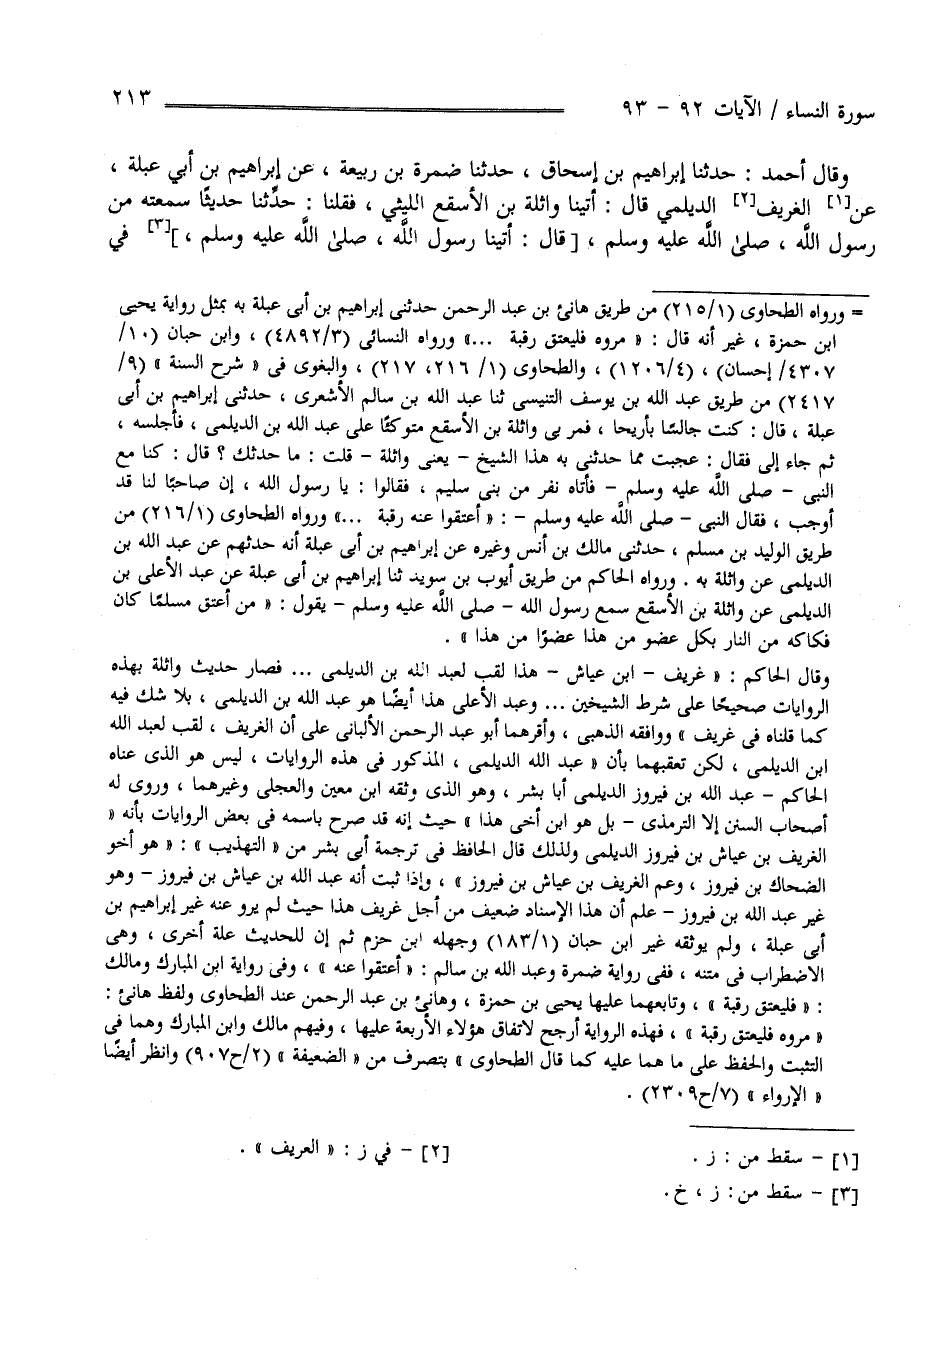 سورة النساء / الآيات ٩٢ - ٩٣ ٢١٣
وقال أحمد : حدثنا إبراهيم بن إسحاق ، حدثنا ضمرة بن ربيعة ، عن إبراهيم بن أبي عبلة ،
عن[١] الغريف[٢] الديلمي قال : أتينا واثلة بن الأسقع الليثي ، فقلنا : حدِّثنا حديثًا سمعته من
رسول اللَّه ، صلىٰ اللَّه عليه وسلم ، [ قال : أتينا رسول اللَّه ، صلىٰ اللَّه عليه وسلم ، ][٣] في
= ورواه الطحاوى (٢١٥/١) من طريق هانئ بن عبد الرحمن حدثنى إبراهيم بن أبى عبلة به بمثل رواية يحيى
ابن حمزة ، غير أنه قال : « مروه فليعتق رقبة ...» ورواه النسائي (٤٨٩٢/٣) ، وابن حبان (١٠/
٤٣٠٧/ إحسان) ، (١٢٠٦/٤) ، والطحاوى (١/ ٢١٦، ٢١٧) ، والبغوى فى « شرح السنة » (٩/
٢٤١٧) من طريق عبد الله بن يوسف التنيسى ثنا عبد الله بن سالم الأشعرى ، حدثنى إبراهيم بن أبى
عبلة ، قال : كنت جالسًا بأريحا ، فمر بى واثلة بن الأسقع متوكئًا على عبد الله بن الديلمى ، فأجلسه ،
ثم جاء إلى فقال : عجبت مما حدثنى به هذا الشيخ - يعنى واثلة - قلت : ما حدثك ؟ قال : كنا مع
النبى - صلى اللَّه عليه وسلم - فأتاه نفر من بنى سليم ، فقالوا : يا رسول الله ، إن صاحبًا لنا قد
أوجب ، فقال النبى - صلى اللَّه عليه وسلم - : « أعتقوا عنه رقبة ...» ورواه الطحاوى (٢١٦/١) من
طريق الوليد بن مسلم ، حدثنى مالك بن أنس وغيره عن إبراهيم بن أبى عبلة أنه حدثهم عن عبد الله بن
الديلمى عن واثلة به . ورواه الحاكم من طريق أيوب بن سويد ثنا إبراهيم بن أبى عبلة عن عبد الأعلى بن
الديلمى عن واثلة بن الأسقع سمع رسول الله - صلى اللَّه عليه وسلم - يقول : « من أعتق مسلمًا كان
فكاكه من النار بكل عضو من هذا عضوًا من هذا » .
وقال الحاكم : « غريف - ابن عياش - هذا لقب لعبد الله بن الديلمى ... فصار حديث واثلة بهذه
الروايات صحيحًا على شرط الشيخين ... وعبد الأعلى هذا أيضًا هو عبد الله بن الديلمى ، بلا شك فيه
كما قلناه فى غريف » ووافقه الذهبى ، وأقرهما أبو عبد الرحمن الألبانى على أن الغريف ، لقب لعبد الله
ابن الديلمى ، لكن تعقبهما بأن « عبد الله الديلمى ، المذكور فى هذه الروايات ، ليس هو الذى عناه
الحاكم - عبد الله بن فيروز الديلمى أبا بشر ، وهو الذى وثقه ابن معين والعجلى وغيرهما ، وروى له
أصحاب السنن إلا الترمذى - بل هو ابن أخى هذا » حيث إنه قد صرح باسمه فى بعض الروايات بأنه «
الغريف بن عياش بن فيروز الديلمى ولذلك قال الحافظ فى ترجمة أبى بشر من « التهذيب » : « هو أخو
الضحاك بن فيروز ، وعم الغريف بن عياش بن فيروز » ، وإذا ثبت أنه عبد الله بن عياش بن فيروز - وهو
غير عبد الله بن فيروز - علم أن هذا الإسناد ضعيف من أجل غريف هذا حيث لم يرو عنه غير إبراهيم بن
أبى عبلة ، ولم يوثقه غير ابن حبان (١٨٣/١) وجهله ابن حزم ثم إن للحديث علة أخرى ، وهى
الاضطراب فى متنه ، ففى رواية ضمرة وعبد الله بن سالم : « أعتقوا عنه » ، وفى رواية ابن المبارك ومالك
: « فليعتق رقبة » ، وتابعهما عليها يحيى بن حمزة ، وهانئ بن عبد الرحمن عند الطحاوى ولفظ هانئ :
« مروه فليعتق رقبة » ، فهذه الرواية أرجح لاتفاق هؤلاء الأربعة عليها ، وفيهم مالك وابن المبارك وهما فى
التثبت والحفظ على ما هما عليه كما قال الطحاوى » بتصرف من « الضعيفة » (٢/ح٩٠٧) وانظر أيضًا
« الإرواء » (٧/ح٢٣٠٩) .
[١] - سقط من : ز . [٢] - في ز : « العريف » .
[٣] - سقط من : ز ، خ .